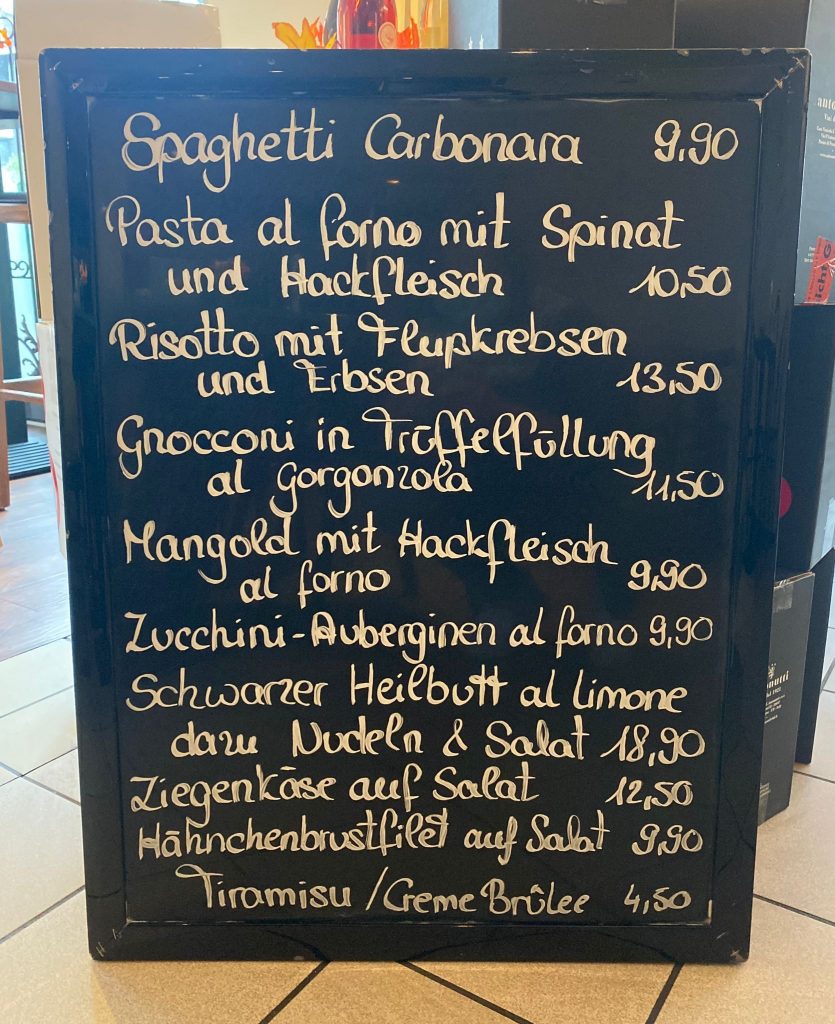 Spaghetti Carbonara 9,90
Pasta al forno mit Spinat
und Hackfleisch 10,50
Risotto mit Flupkrebsen
und Erbsen 13,50
Gnocconi in Trüffelfüllung
al Gorgonzola 11,50
Mangold mit Hackfleisch
al forno 9,90
Zucchini-Auberginen al forno 9,90
Schwarzer Heilbutt al limone
dazu Nudeln & Salat 18,90
Ziegenkäse auf Salat 12,50
Hähnchenbrustfilet auf Salat 9,90
Tiramisu / Creme Brûlee 4,50